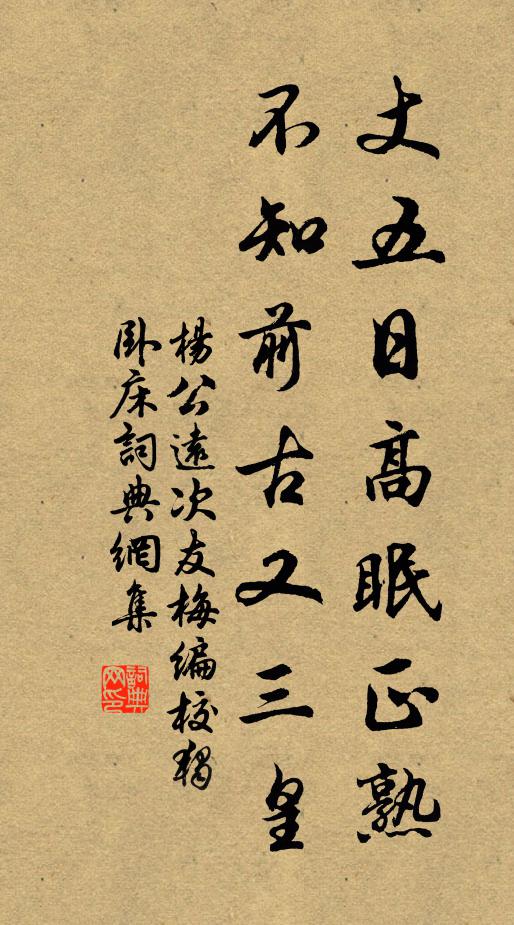 丈五日高眠正熟
不知前古又三皇
楊公遠次友梅編校獨
臥床詞典網集
詞典
网印